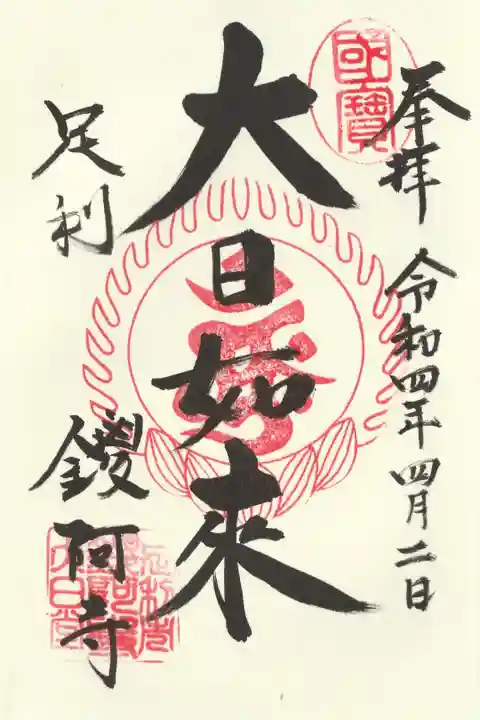 奉拝 令和四年四月二日
國寶
大日如来
足利
鑁阿寺